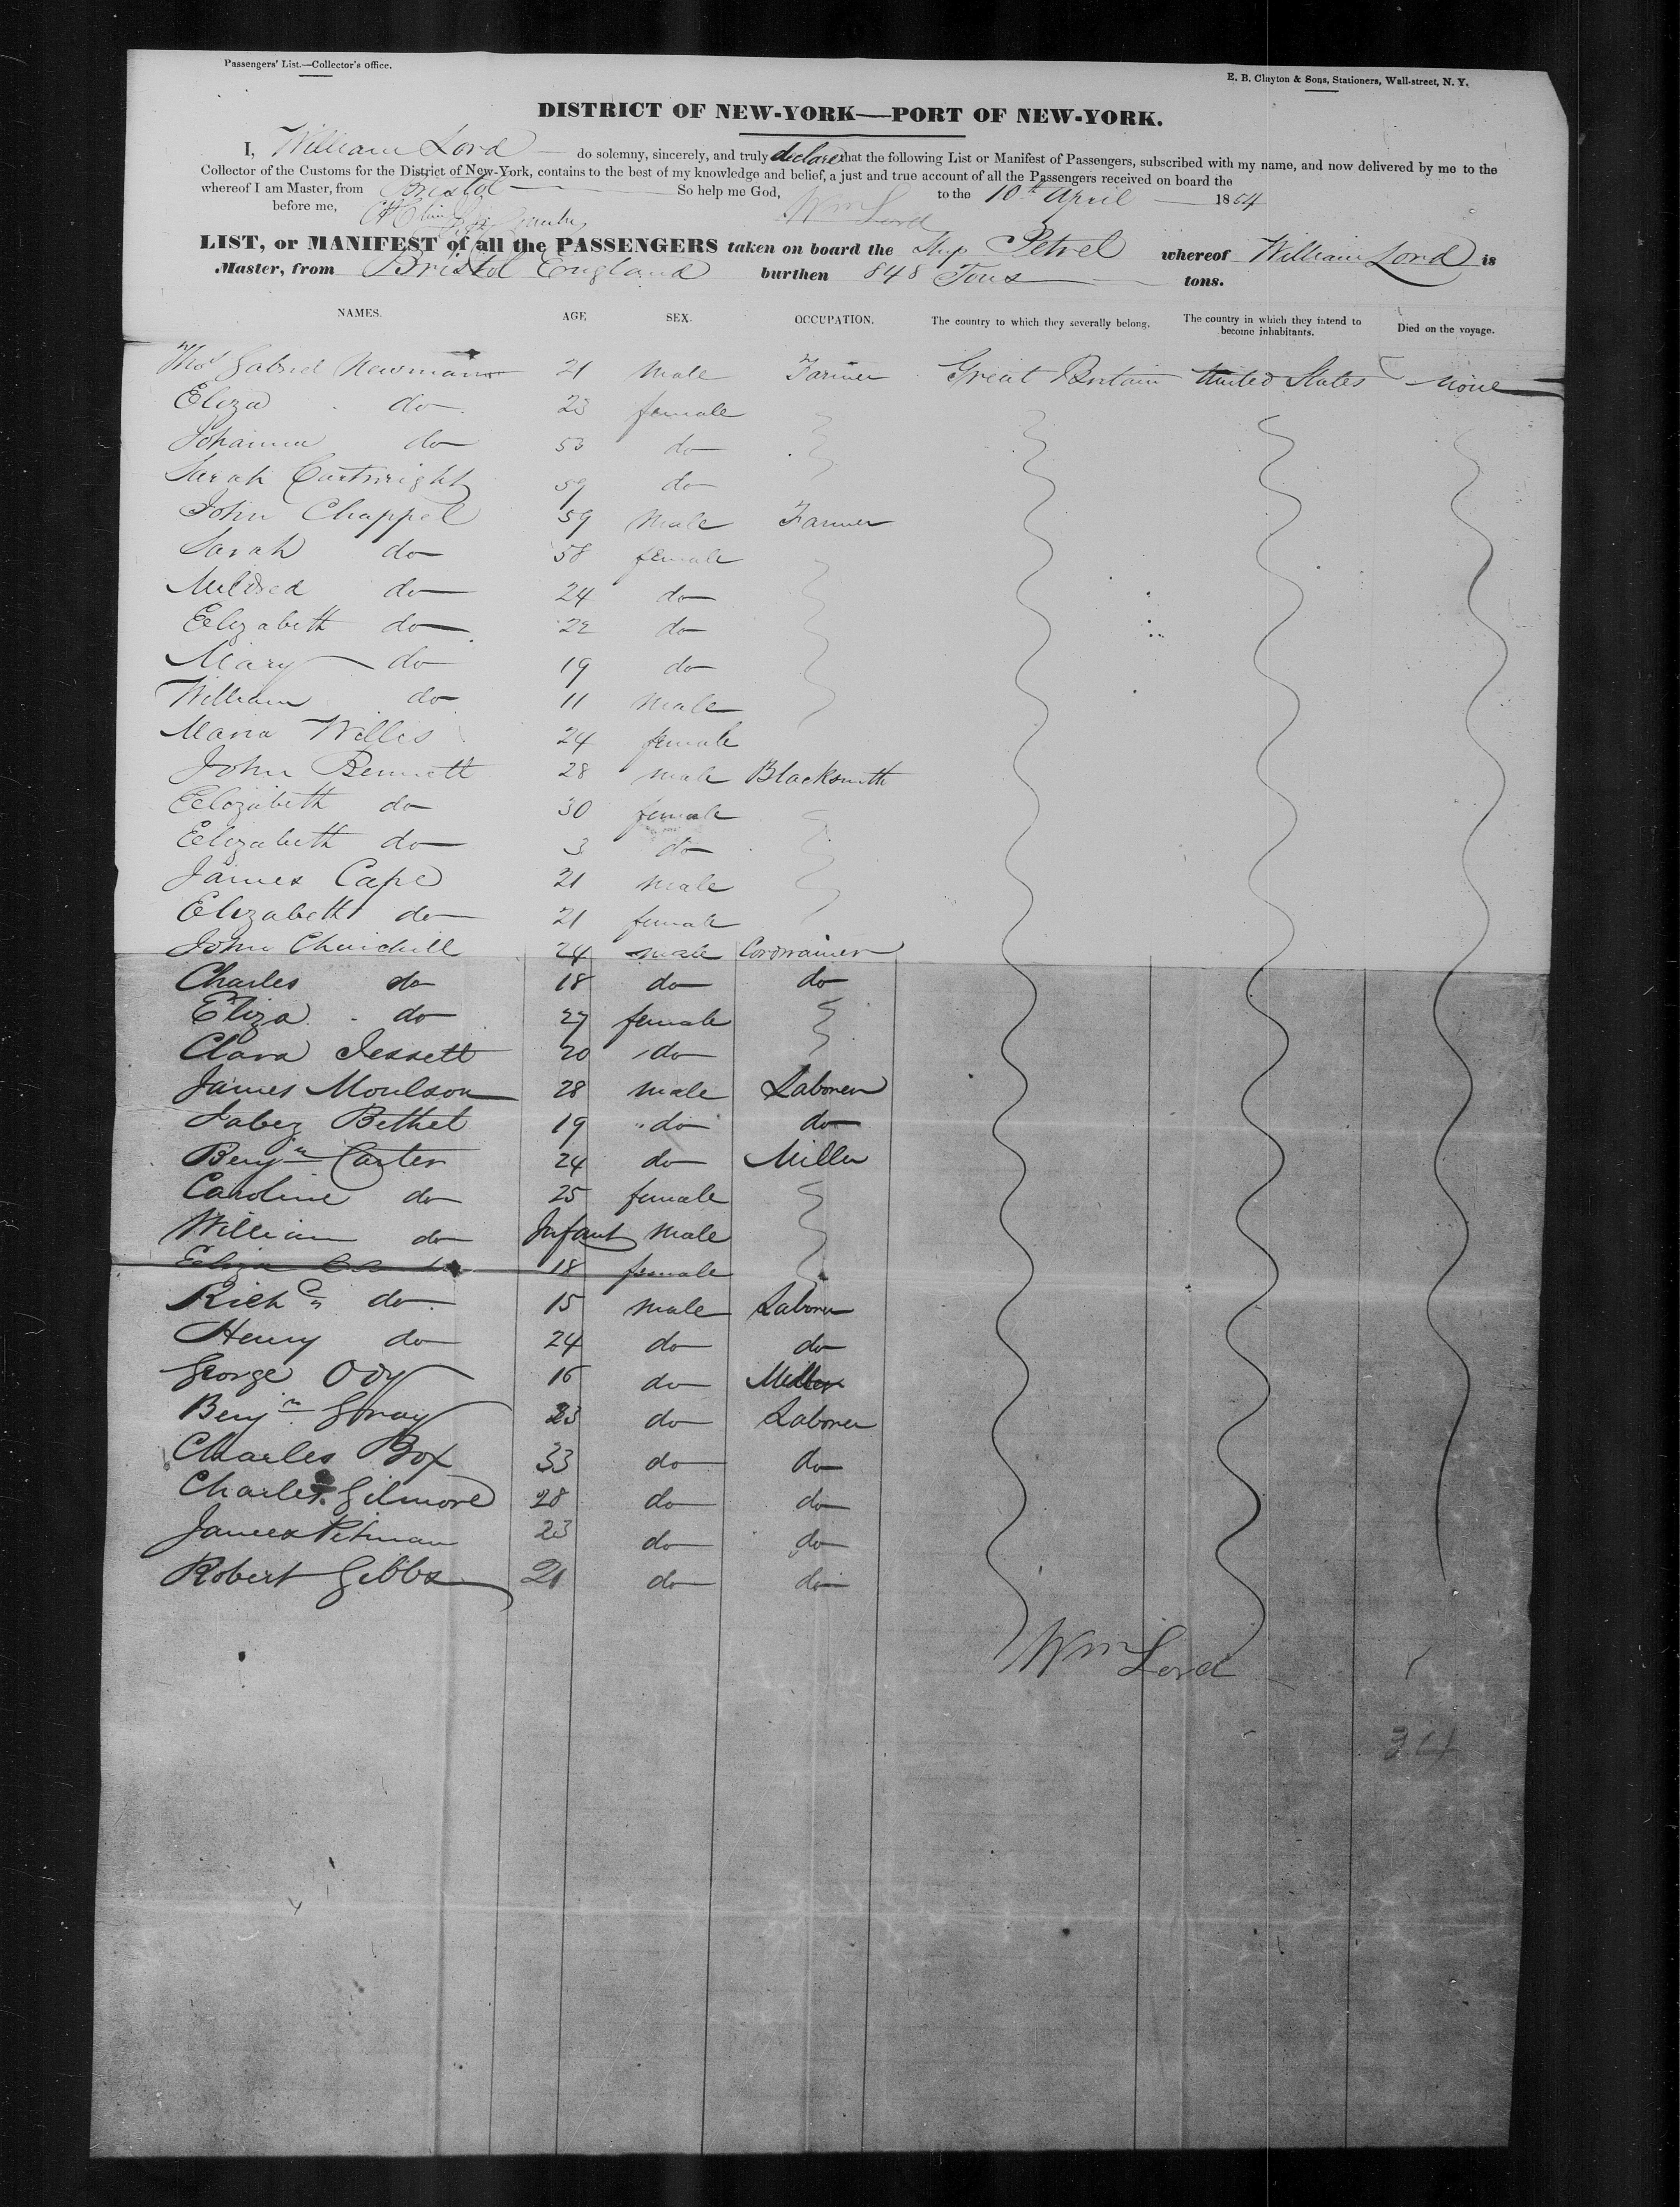 Passengers' List.—Collector's Office.
E. B. Clayton & Sons, Stationers, Wall-street, N. Y.
DISTRICT OF NEW-YORK—PORT OF NEW-YORK.
I, William Lord do solemny, sincerely, and truly declare that the following List or Manifest of Passengers, subscribed with my name, and now delivered by me to the
Collector of the Customs for the District of New-York, contains to the best of my knowledge and belief, a just and true account of all the Passengers received on board the
whereof I am Master, from Bristol So help me God, to the 10th April 1854
before me, Wm Lord
LIST, or MANIFEST of all the PASSENGERS taken on board the Ship Petrel whereof William Lord is
Master, from Bristol England burthen 848 Tons tons.
NAMES. AGE SEX. OCCUPATION. The country to which they severally belong. The country in which they intend to become inhabitants. Died on the voyage.
Thos Gabriel Newman 21 Male Farmer Great Britain United States none
Eliza do 23 female
Johanna do 53 do
Sarah Cartwright 59 do
John Chappel 59 Male Farmer
Sarah do 58 female
Mildred do 24 do
Elizabeth do 22 do
Mary do 19 do
William do 11 Male
Maria Willis 24 female
John Bennett 28 male Blacksmith
Elizabeth do 30 female
Elizabeth do 3 do
James Cape 21 male
Elizabeth do 21 female
John Churchill 24 male Cordwainer
Charles do 18 do do
Eliza do 27 female
Clara Jessett 20 do
James Moulson 28 male Laborer
Jabez Bethel 19 do do
Benjn Carter 24 do Miller
Caroline do 25 female
William do Infant male
Eliza 18 female
Rich do 15 male Laborer
Henry do 24 do do
George Ody 16 do Miller
Benjn Gray 23 do Laborer
Charles Box 33 do do
Charles Gilmore 28 do do
James Pitman 23 do do
Robert Gibbs 21 do do
Wm Lord
34